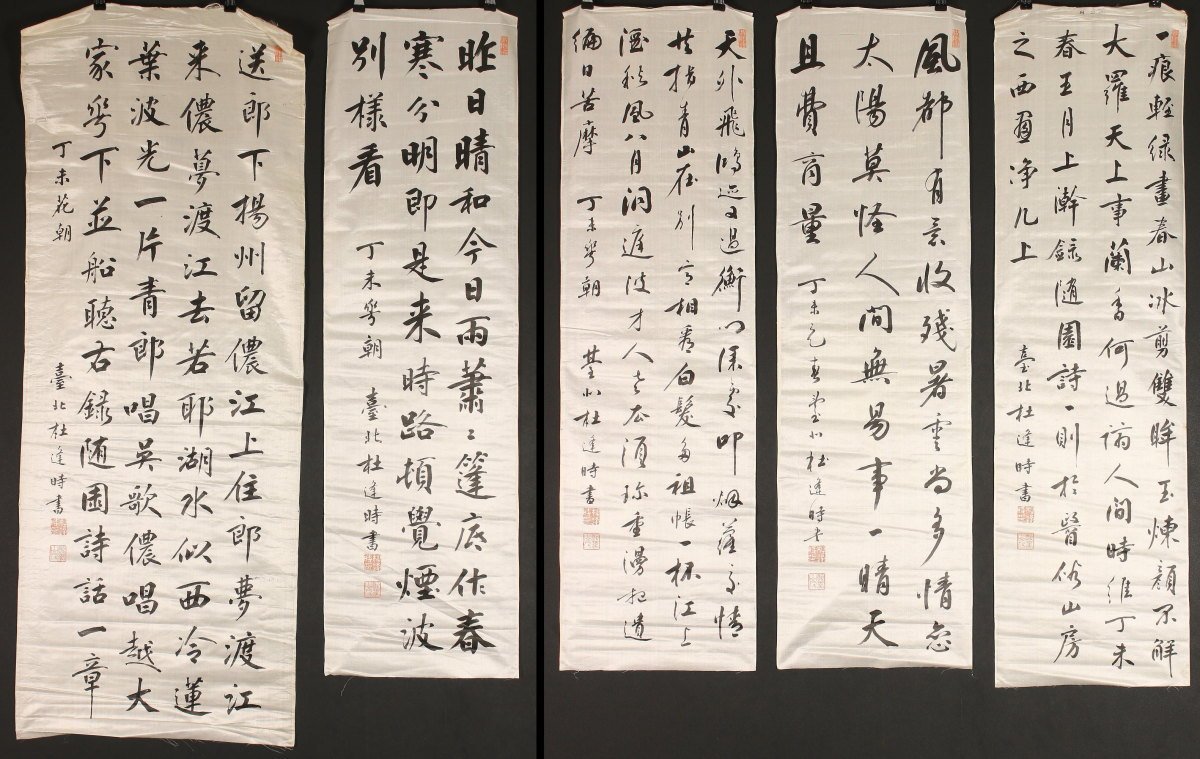 一痕輕绿畫春山冰剪雙眸玉煉顏不解
大羅天上事蘭香何過謫人間時維丁未
春王月上澣録随園詩一則於醫俗山房
之西窗净几上
臺北杜逢時書
風都有意收殘暑雲尚多情戀
太陽莫怪人間無易事一晴天
且費商量
丁未元春臺北杜逢時書
天外飛鴻迹又過衡門深處叩烟蘿交情
共指青山在別意相看白髮多祖帳一杯江上
酒秋風八月洞庭波才人老須珍重漫把遺
編日苦摩
丁未花朝
臺北杜逢時書
昨日晴和今日雨蕭〻篷底作春
寒分明即是来時路頓覺煙波
別樣看
丁未花朝
臺北杜逢時書
送郎下揚州留儂江上住郎夢渡江
来儂夢渡江去若耶湖水似西冷蓮
葉波光一片青郎唱吴歌儂唱越大
家花下並船聽右録随園詩話一章
丁未花朝
臺北杜逢時書